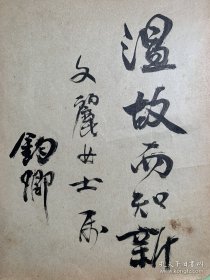 溫故而知新
文麗女士屬
鈞卿